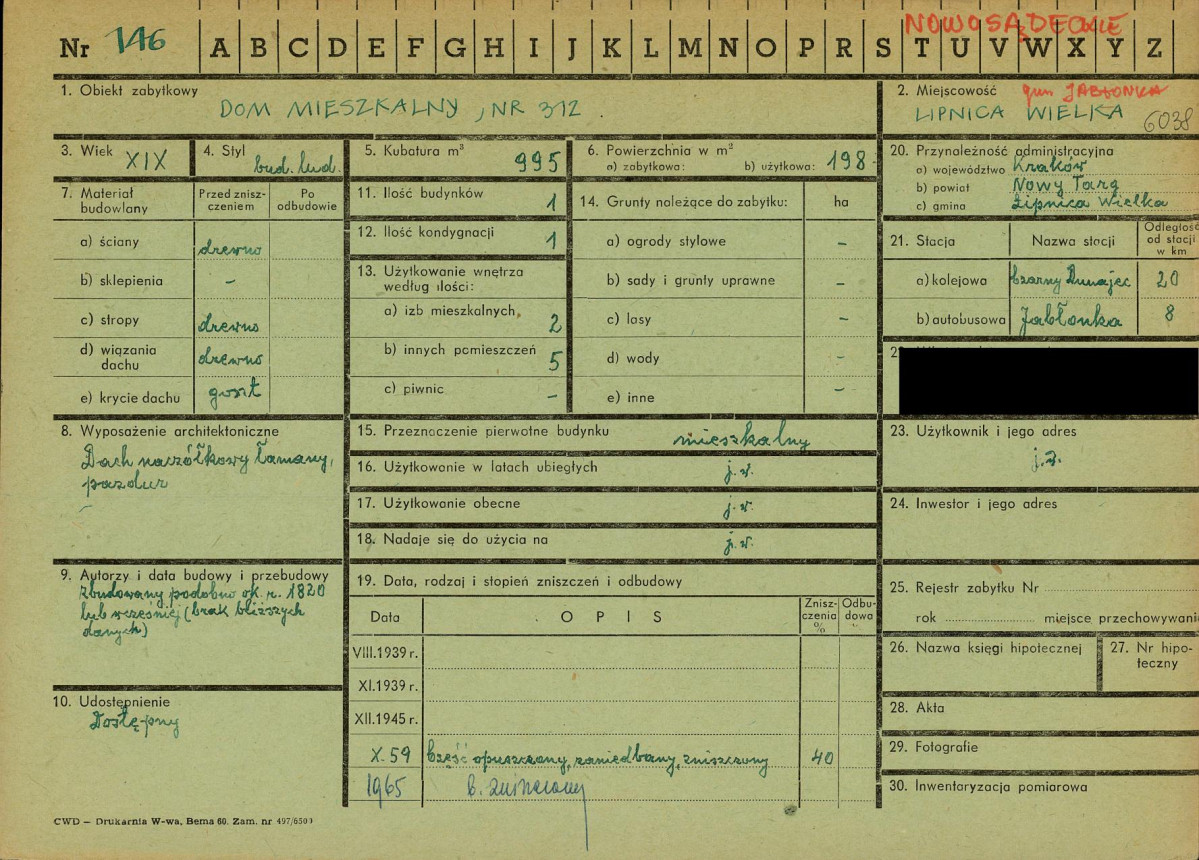 NOWOSĄDECKIE
Nr 146 A B C D E F G H I J K L M N O P R S T U V W X Y Z
1. Obiekt zabytkowy
DOM MIESZKALNY, NR 312
2. Miejscowość gm JABŁONKA
LIPNICA WIELKA 6038
3. Wiek XIX
4. Styl bud. lud.
5. Kubatura m³ 995
6. Powierzchnia w m²
a) zabytkowa: b) użytkowa: 198
7. Materiał budowlany
Przed zniszczeniem
Po odbudowie
a) ściany drewno
b) sklepienia –
c) stropy drewno
d) wiązania dachu drewno
e) krycie dachu gont
8. Wyposażenie architektoniczne
Dach naczółkowy łamany,
pazdur
9. Autorzy i data budowy i przebudowy
zbudowany podobno ok. r. 1820
lub wcześniej (brak bliższych
danych)
10. Udostępnienie
Dostępny
11. Ilość budynków 1
12. Ilość kondygnacji 1
13. Użytkowanie wnętrza
według ilości:
a) izb mieszkalnych 2
b) innych pomieszczeń 5
c) piwnic –
14. Grunty należące do zabytku: ha
a) ogrody stylowe –
b) sady i grunty uprawne –
c) lasy –
d) wody –
e) inne –
15. Przeznaczenie pierwotne budynku mieszkalny
16. Użytkowanie w latach ubiegłych j.w.
17. Użytkowanie obecne j.w.
18. Nadaje się do użycia na j.w.
19. Data, rodzaj i stopień zniszczeń i odbudowy
Data OPIS Zniszczenia % Odbudowa
VIII.1939 r.
XI.1939 r.
XII.1945 r.
X.59 Część opuszczony, zaniedbany, zniszczony 40
1965 b. zniszczony
20. Przynależność administracyjna
a) województwo Kraków
b) powiat Nowy Targ
c) gmina Lipnica Wielka
21. Stacja Nazwa stacji Odległość od stacji w km
a) kolejowa Czarny Dunajec 20
b) autobusowa Jabłonka 8
23. Użytkownik i jego adres
24. Inwestor i jego adres
25. Rejestr zabytku Nr
rok miejsce przechowywani
26. Nazwa księgi hipotecznej
27. Nr hipoteczny
28. Akta
29. Fotografie
30. Inwentaryzacja pomiarowa
CWD – Drukarnia W-wa, Bema 60. Zam. nr 497/650